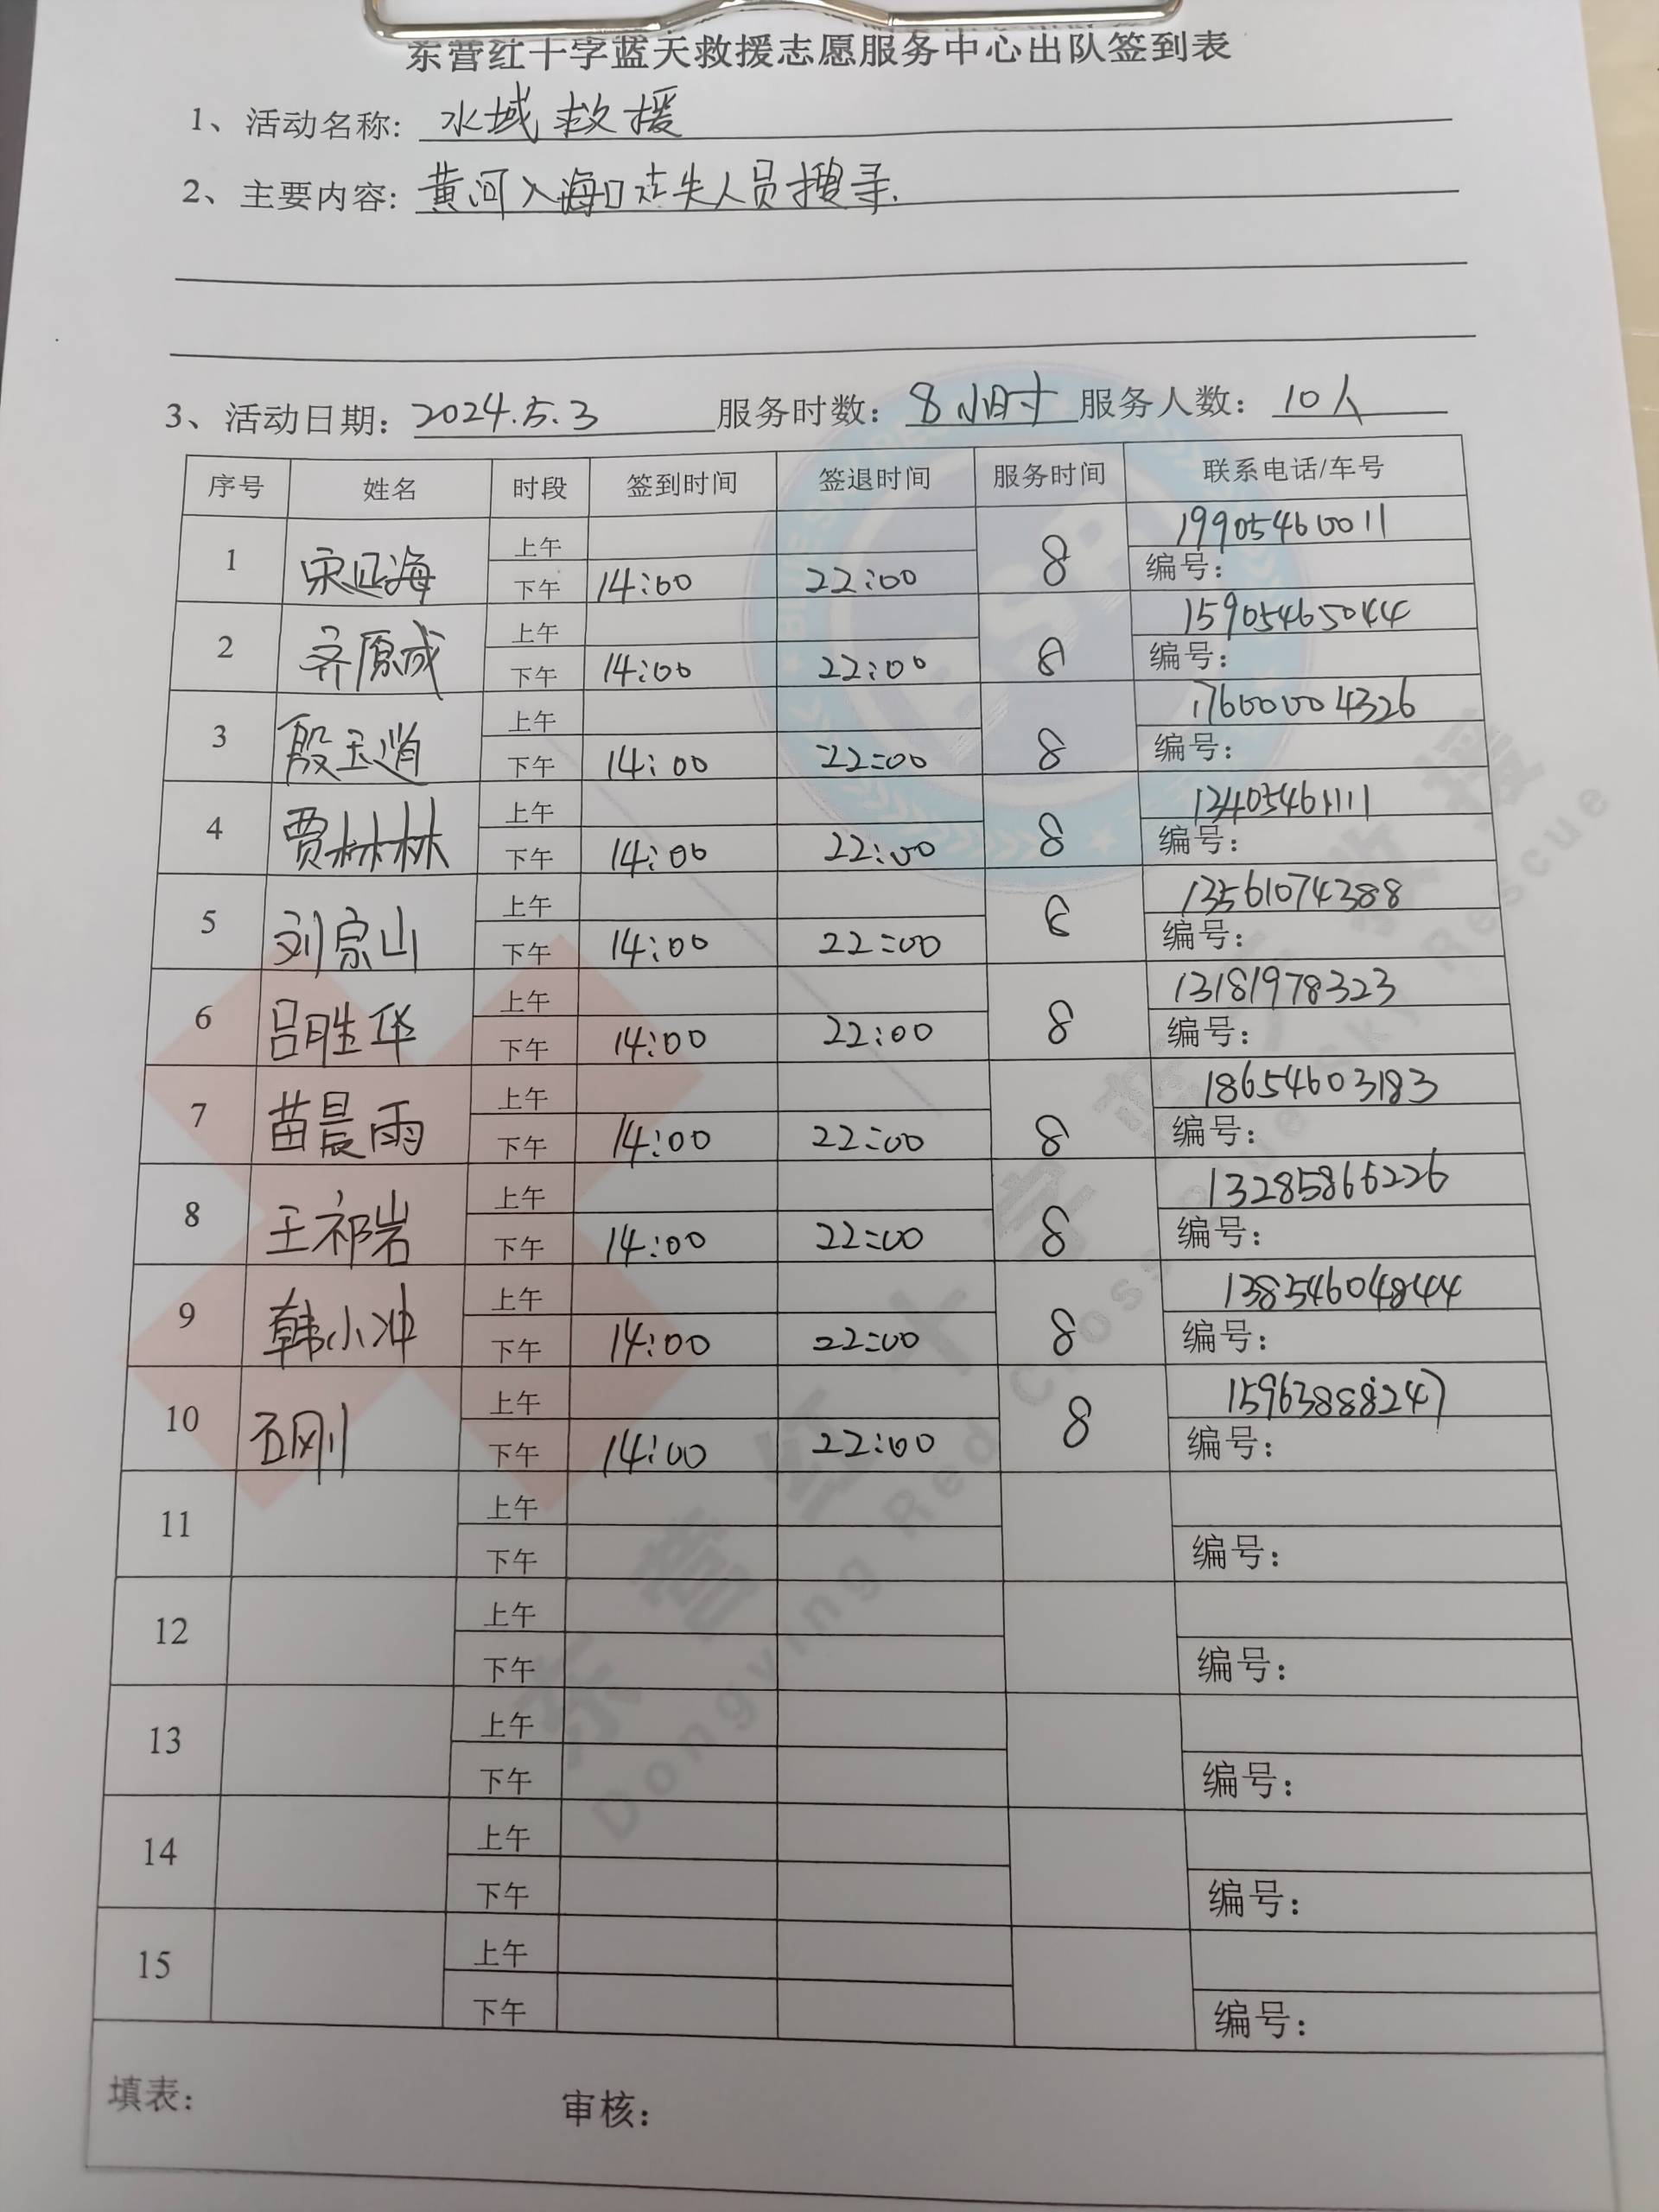 东营红十字蓝天救援志愿服务中心出队签到表
1、活动名称: 水域救援
2、主要内容: 黄河入海口走失人员搜寻.
3、活动日期: 2024.5.3 服务时数: 8小时 服务人数: 10人
序号 姓名 时段 签到时间 签退时间 服务时间 联系电话/车号
1 宋延海 上午 8 19905460011
下午 14:00 22:00 编号:
2 齐原成 上午 8 15905465044
下午 14:00 22:00 编号:
3 殷玉逍 上午 8 17600004326
下午 14:00 22:00 编号:
4 贾林林 上午 8 13405461111
下午 14:00 22:00 编号:
5 刘宗山 上午 8 13561074388
下午 14:00 22:00 编号:
6 吕胜华 上午 8 13181978323
下午 14:00 22:00 编号:
7 苗晨雨 上午 8 18654603183
下午 14:00 22:00 编号:
8 王祁岩 上午 8 13285866226
下午 14:00 22:00 编号:
9 韩小冲 上午 8 13854604844
下午 14:00 22:00 编号:
10 石刚 上午 8 15963888247
下午 14:00 22:00 编号:
11 上午
下午 编号:
12 上午
下午 编号:
13 上午
下午 编号:
14 上午
下午 编号:
15 上午
下午 编号:
填表: 审核:
东营红十字蓝天救援
Dongying Red Cross Blue Sky Rescue